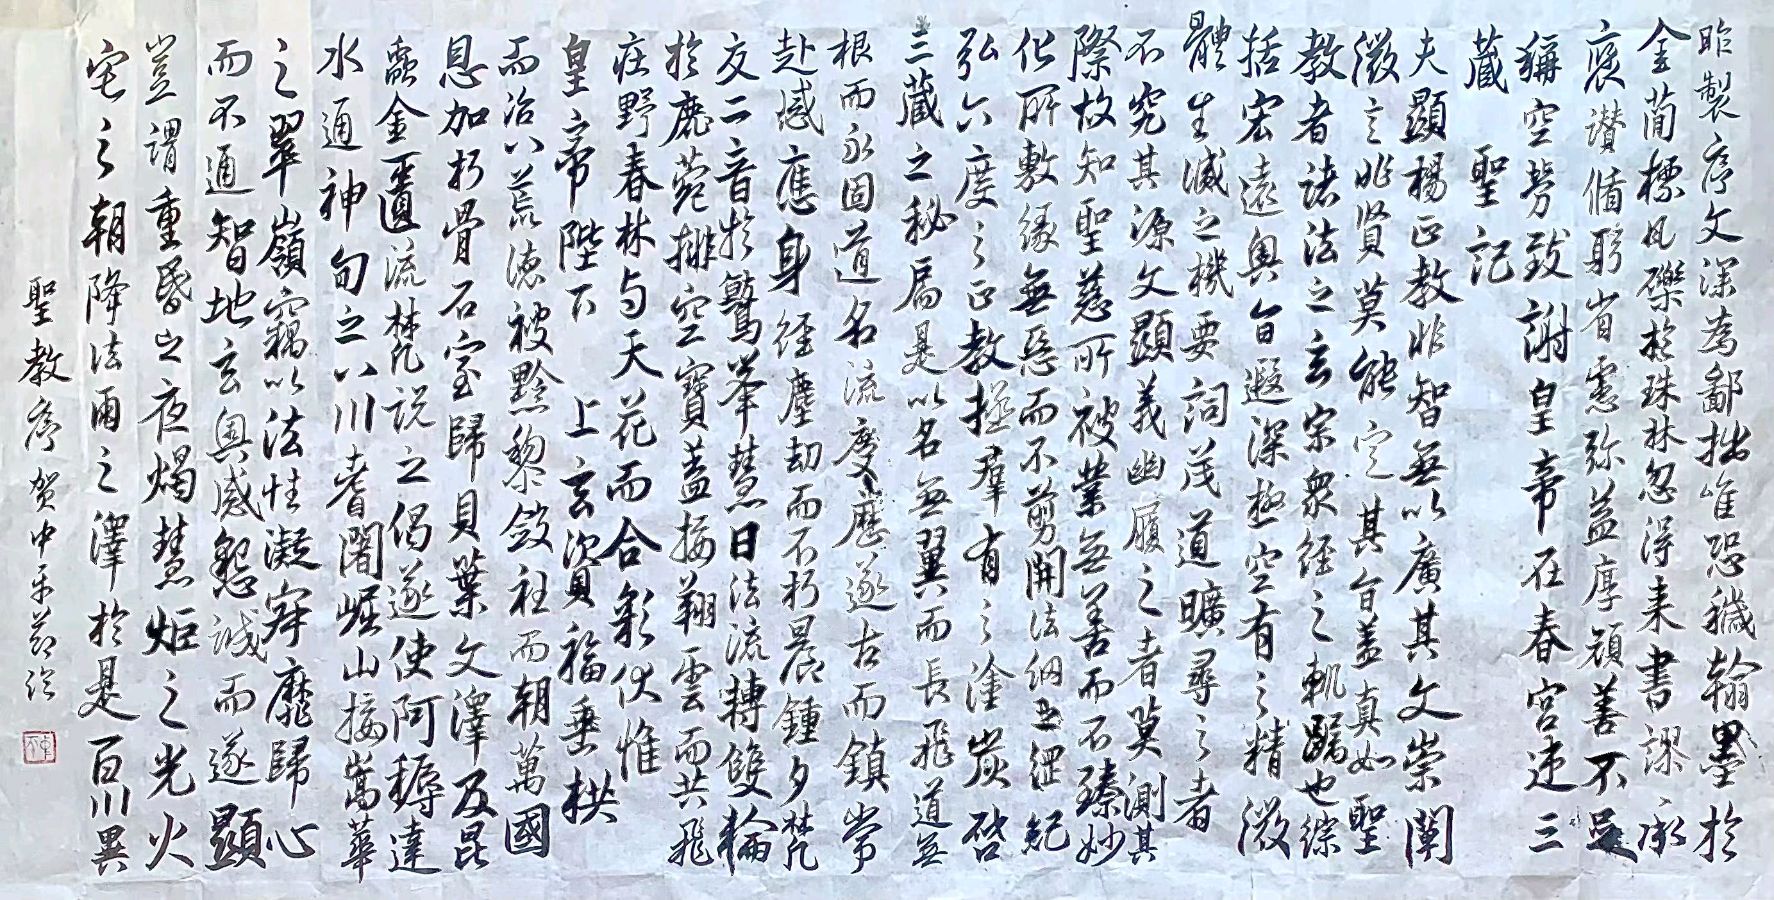 昨製序文深為鄙拙唯恐穢翰墨於
金簡標凡礫於珠林忽得来書謬承
褒讃循躬省慮弥益厚顔善不足
稱空勞致謝皇帝在春宮述三
藏聖記
夫顯揚正教非智無以廣其文崇闡
微言非賢莫能定其旨盖真如聖
教者諸法之玄宗衆經之軌躅也綜
括宏遠奥旨遐深極空有之精微
體生滅之機要詞茂道曠尋之者
不究其源文顯義幽履之者莫測其
際故知聖慈所被業無善而不臻妙
化所敷緣無惡而不剪開法網之綱紀
弘六度之正教拯羣有之塗炭啓
三藏之秘扃是以名無翼而長飛道無
根而永固道名流慶歷遂古而鎮常
赴感應身經塵劫而不朽晨鍾夕梵
交二音於鷲峯慧日法流轉雙輪
於鹿菀排空寶盖接翔雲而共飛
莊野春林与天花而合彩伏惟
皇帝陛下上玄資福垂拱
而治八荒德被黔黎斂衽而朝萬國
恩加朽骨石室歸貝葉文澤及昆
蟲金匱流梵説之偈遂使阿耨達
水通神甸之八川耆闍崛山接嵩華
之翠嶺竊以法性凝寂靡歸心
而不通智地玄奥感懇誠而遂顯
豈謂重昏之夜燭慧炬之光火
宅之朝降法雨之澤於是百川異
聖教序賀中